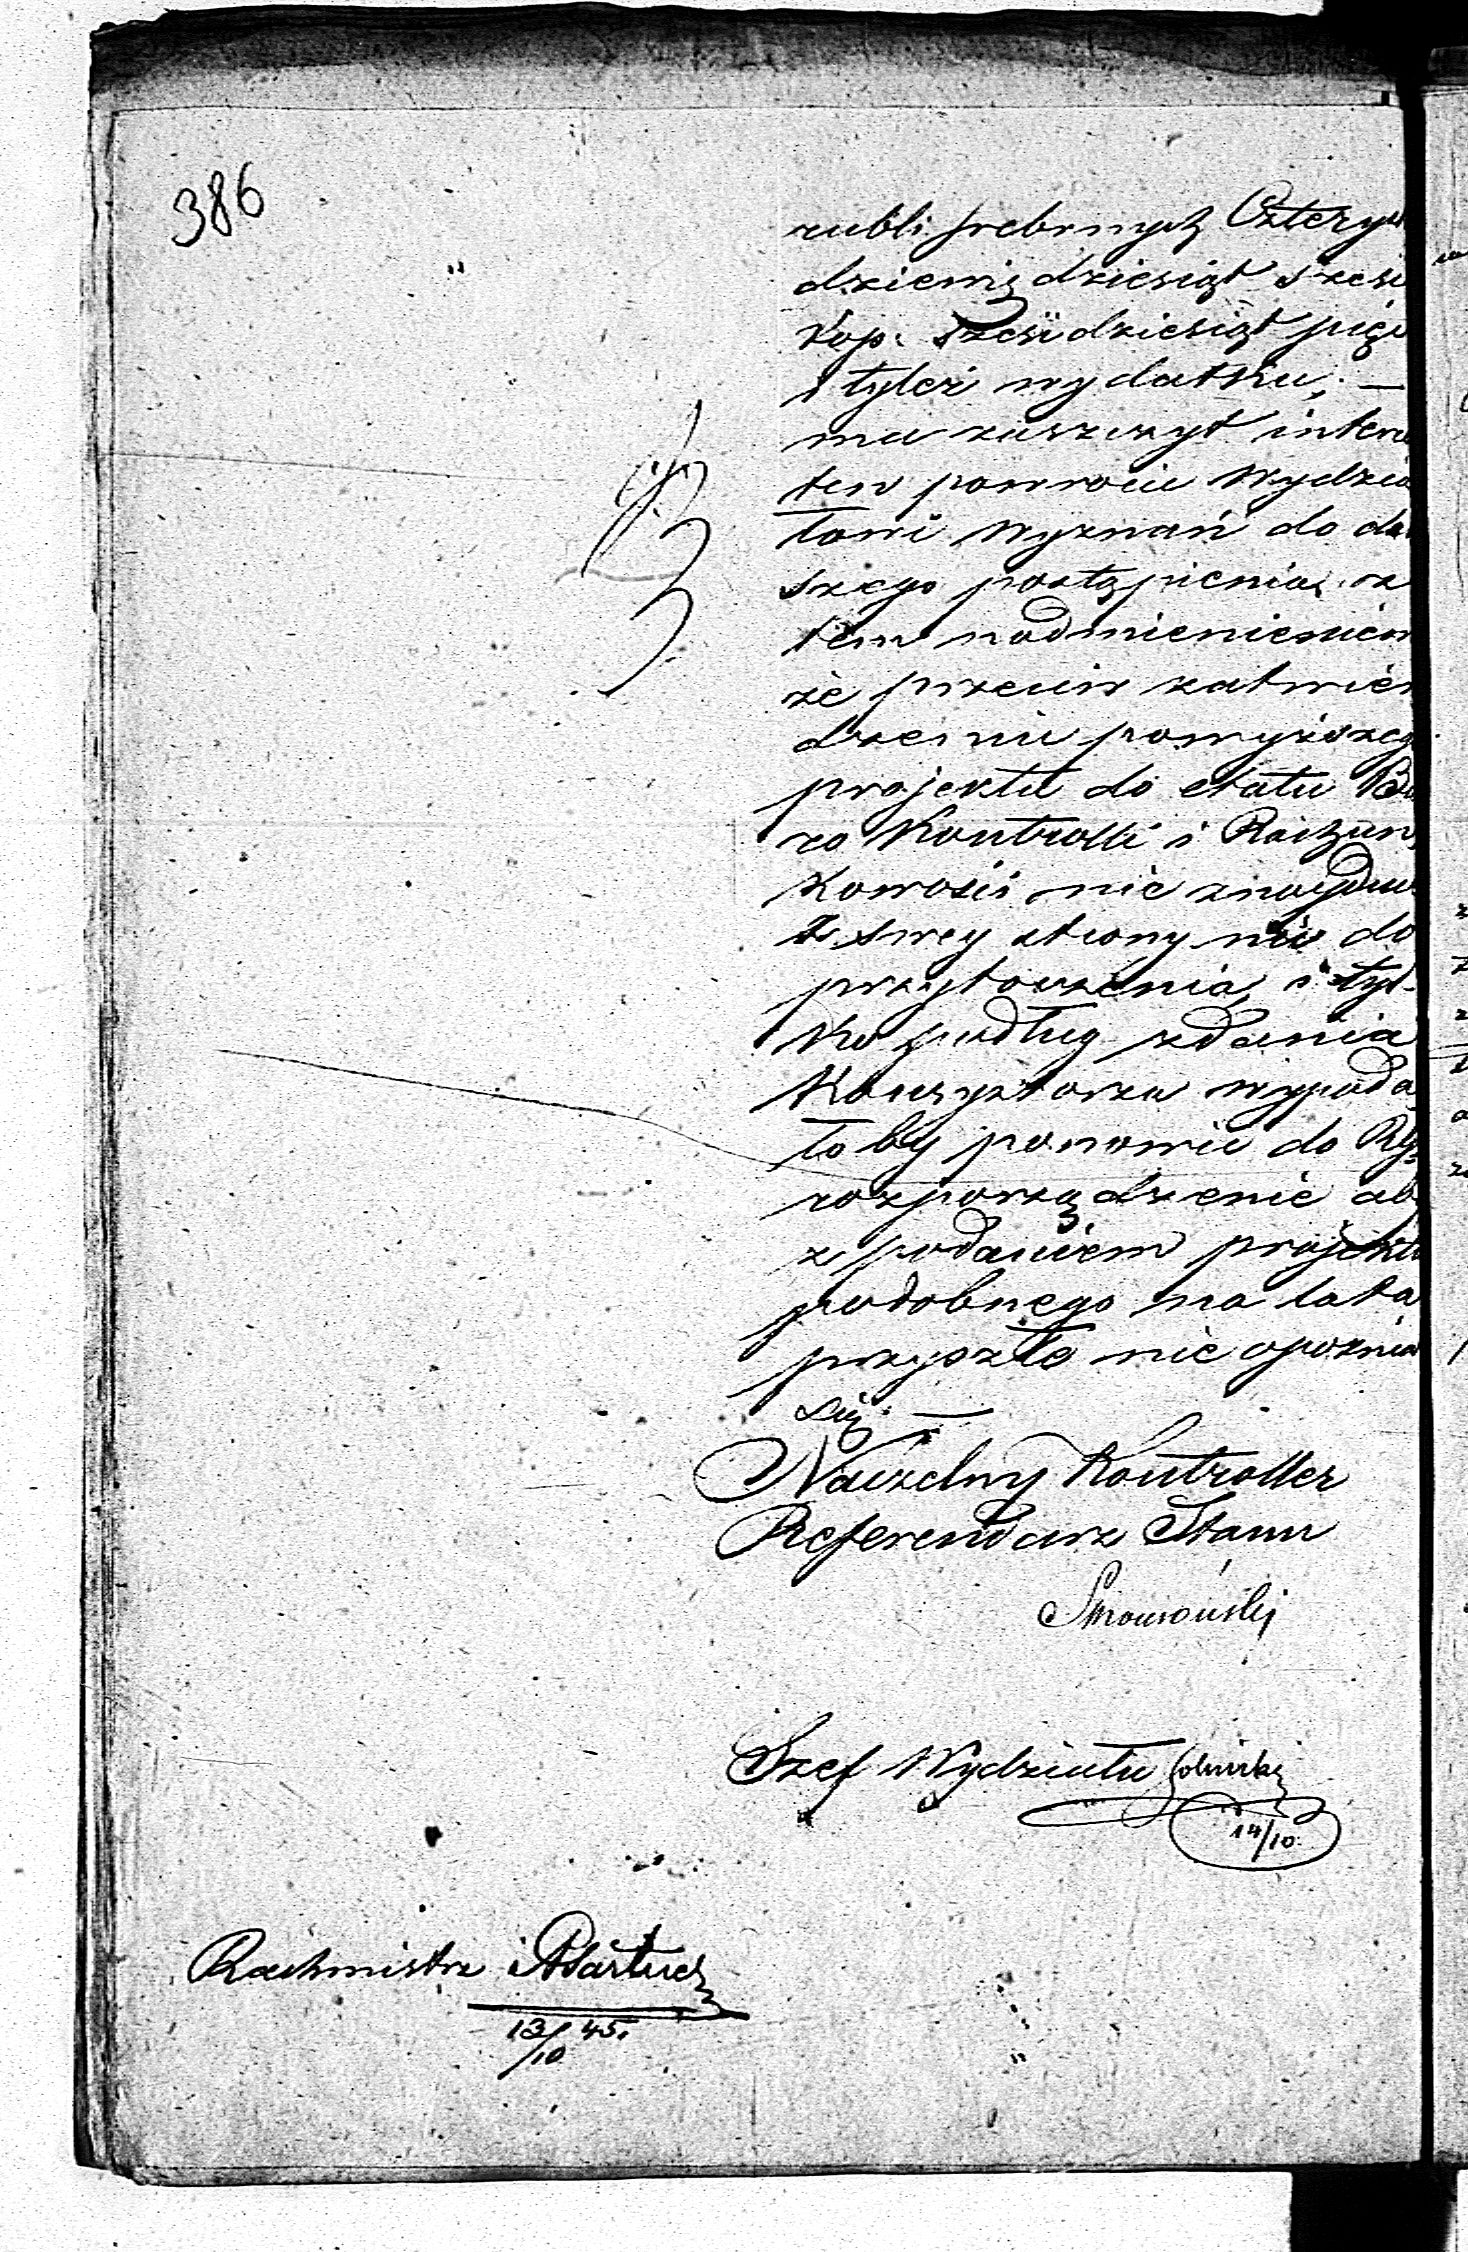 386
rubli srebrnych Czterys
dziewięćdziesiąt sześć
kop. sześćdziesiąt pięć
i tyleż wydatku, —
ma zaszczyt interes
ten powrócić Wydzia
łowi Wyznań do dal
szego postąpienia, z
tem nadmienieniem
że przeciw zatwier
dzeniu powyższego
projektu do etatu Biu
ro Kontrolli i Rachun
kowości nic znajduie
z swey strony nic do
przytoczenia, i tyl-
ko podług zdania
Konsystorza wypada
ło by ponowić do
rozporządzenie aby
z podaniem projektu
podobnego na lata
przyszłe nie opóźniał
się. —
Naczelny Kontroller
Referendarz Stanu
Szef Wydziału
14/10.
Rachmistrz
13/10 45.